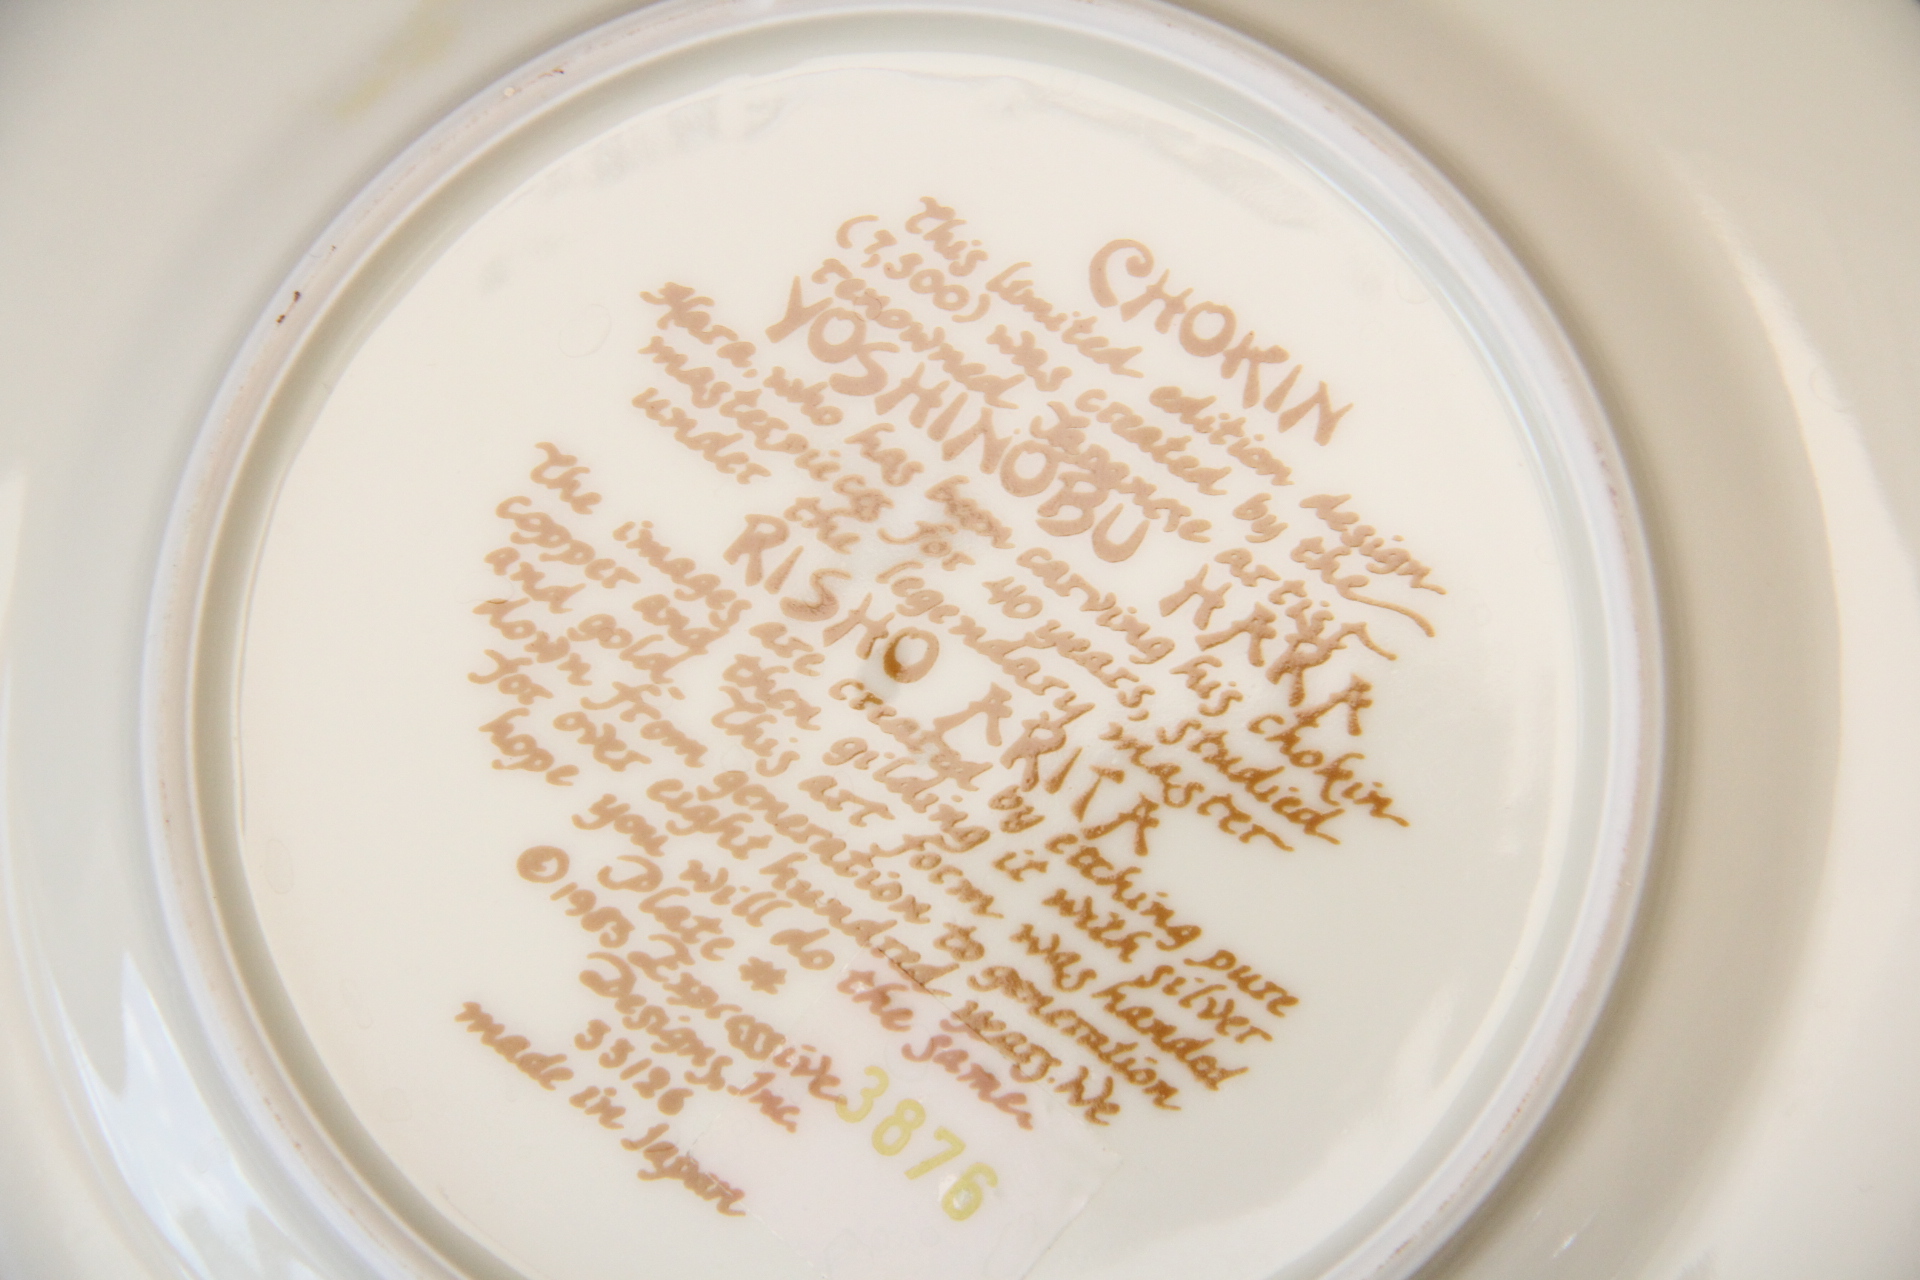 CHOKIN
This limited edition design
(7,500) was created by the
renowned Japanese artist
YOSHINOBU HARA
Hara, who has been carving his chokin
masterpieces for 40 years, studied
under the legendary master
RISHO ARITA
The images are created by etching pure
copper and then gilding it with silver
and gold. This art form was handed
down from generation to generation
for over eight hundred years. We
hope you will do the same.
Plate #
3876
©1983 Expressive
Designs, Inc.
33126
made in Japan